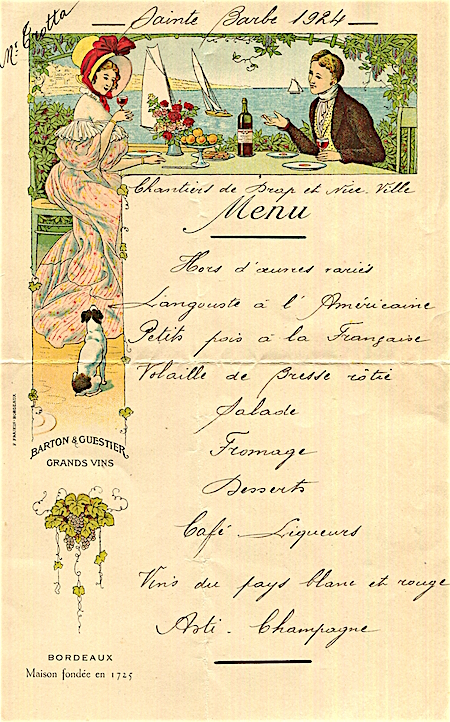 Mr Trotta
Sainte Barbe 1924
Chantiers de Drap et Nice-Ville
Menu
Hors d'œuvres variés
Langouste à l'Américaine
Petits pois à la Française
Volaille de Bresse rôtie
Salade
Fromage
Desserts
Café Liqueurs
Vins du pays blanc et rouge
Asti - Champagne
BARTON & GUESTIER
GRANDS VINS
BORDEAUX
Maison fondée en 1725